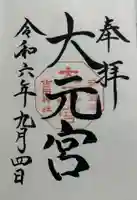 奉拝
大元宮
令和六年九月四日